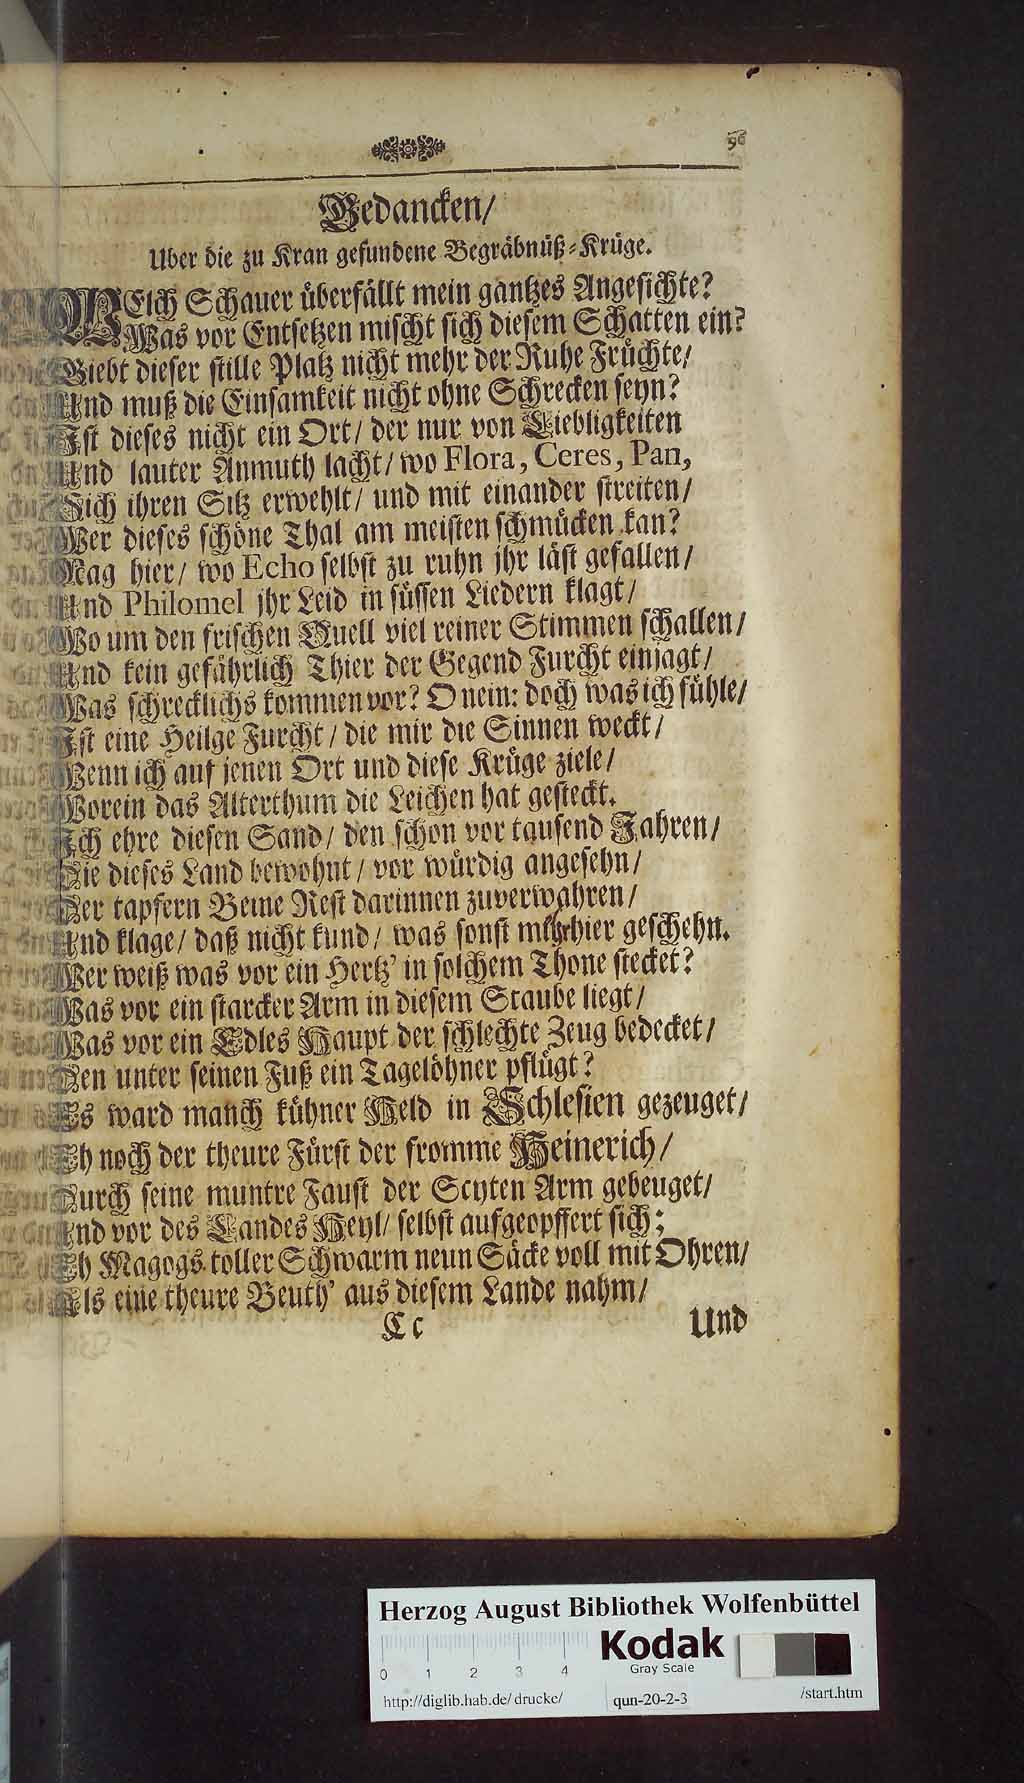 56
Gedancken/
Uber die zu Kran gefundene Begräbnüß-Krüge.
WElch Schauer überfällt mein gantzes Angesichte?
Was vor Entsetzen mischt sich diesem Schatten ein?
Giebt dieser stille Platz nicht mehr der Ruhe Früchte/
Und muß die Einsamkeit nicht ohne Schrecken seyn?
Ist dieses nicht ein Ort/ der nur von Liebligkeiten
Und lauter Anmuth lacht/ wo Flora, Ceres, Pan,
Sich ihren Sitz erwehlt/ und mit einander streiten/
Wer dieses schöne Thal am meisten schmücken kan?
Mag hier/ wo Echo selbst zu ruhn jhr läst gefallen/
Und Philomel jhr Leid in süssen Liedern klagt/
Wo um den frischen Quell viel reiner Stimmen schallen/
Und kein gefährlich Thier der Gegend Furcht einjagt/
Was schrecklichs kommen vor? O nein: doch was ich fühle/
Ist eine Heilge Furcht/ die mir die Sinnen weckt/
Wenn ich auf jenen Ort und diese Krüge ziele/
Worein das Alterthum die Leichen hat gesteckt.
Ich ehre diesen Sand/ den schon vor tausend Jahren/
Die dieses Land bewohnt/ vor würdig angesehn/
Der tapfern Beine Rest darinnen zuverwahren/
Und klage/ daß nicht kund/ was sonst mehr hier geschehn.
Wer weiß was vor ein Hertz' in solchem Thone stecket?
Was vor ein starcker Arm in diesem Staube liegt/
Was vor ein Edles Haupt der schlechte Zeug bedecket/
Den unter seinen Fuß ein Tagelöhner pflügt?
Es ward manch kühner Held in Schlesien gezeuget/
Eh noch der theure Fürst der fromme Heinerich/
Durch seine muntre Faust der Scyten Arm gebeuget/
Und vor des Landes Heyl/ selbst aufgeopffert sich;
Eh Magogs toller Schwarm neun Säcke voll mit Ohren/
Als eine theure Beuth' aus diesem Lande nahm/
Cc Und
Herzog August Bibliothek Wolfenbüttel
Kodak
Gray Scale
0 1 2 3 4
http://diglib.hab.de/drucke/ qun-20-2-3 /start.htm